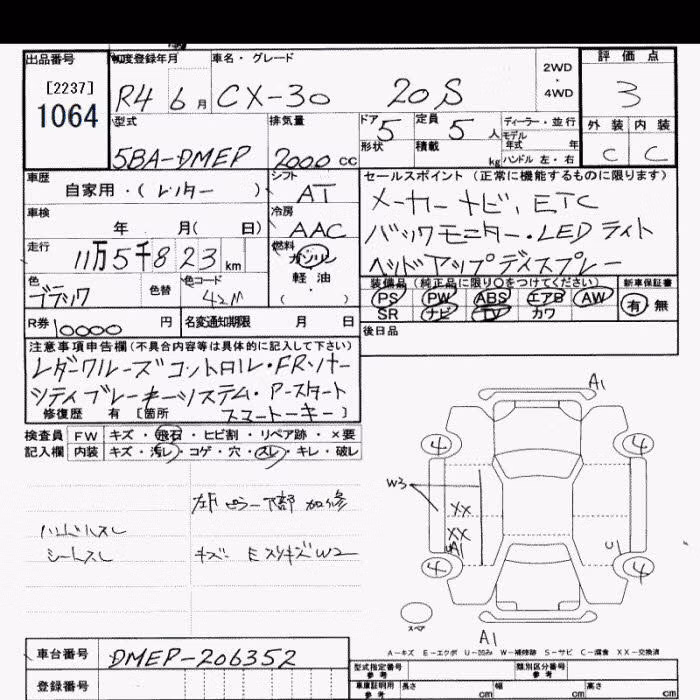 出品番号
[2237]
1064
初度登録年月
R4 6月
車名・グレード
CX-30 20S
2WD
・
4WD
評価点
3
外装 内装
C C
型式
5BA-DMEP
排気量
2000 cc
ドア 5
形状
定員 5 人
積載 kg
ディーラー・並行
モデル年式 年
ハンドル 左・右
車歴
自家用・(レンター)
シフト
AT
車検
年 月( 日)
冷房
AAC
走行
11万5千823km
燃料
ガソリン
軽油
( ・ )
色
ブラック
色替
色コード
42M
R券 10000 円
名変通知期限 月 日
セールスポイント (正常に機能するものに限ります)
メーカーナビ、ETC
バックモニター・LEDライト
ヘッドアップディスプレー
装備品 (純正品に限り○をつけてください)
PS PW ABS エアB AW
SR ナビ TV カワ
新車保証書
有 無
後日品
注意事項申告欄(不具合内容等は具体的に記入して下さい)
レダークルーズコントロール・FRソナー
シティブレーキシステム・P-スタート
スマートーキー
修復歴 有 [箇所 ]
検査員記入欄
FW キズ・飛石・ヒビ割・リペア跡・×要
内装 キズ・汚レ・コゲ・穴・スレ・キレ・破レ
左F ピラー下部 加修
ハンドルスレ
シートスレ
キズ E スリキズW2
A1
4 4
W3
XX
XX
A1
U1
4 4
スペア
A1
A−キズ E−エクボ U−凹み W−補修跡 S−サビ C−腐食 XX−交換済
車台番号
DMEP-206352
登録番号
型式指定番号 参考
類別区分番号 参考
車庫証明用 参考
長さ cm 幅 cm 高さ cm